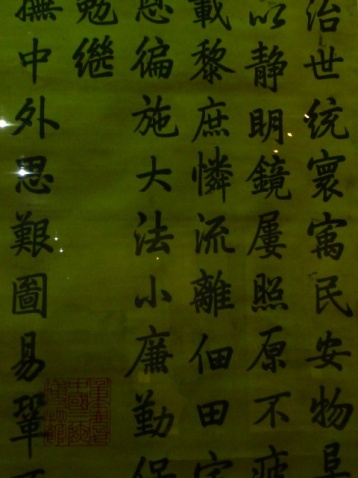 治世统寰寓民安物阜
以静明鏡屡照原不疲
載黎庶憐流離佃田
恩徧施大法小廉勤保
勉繼
撫中外思艱圖易鞏